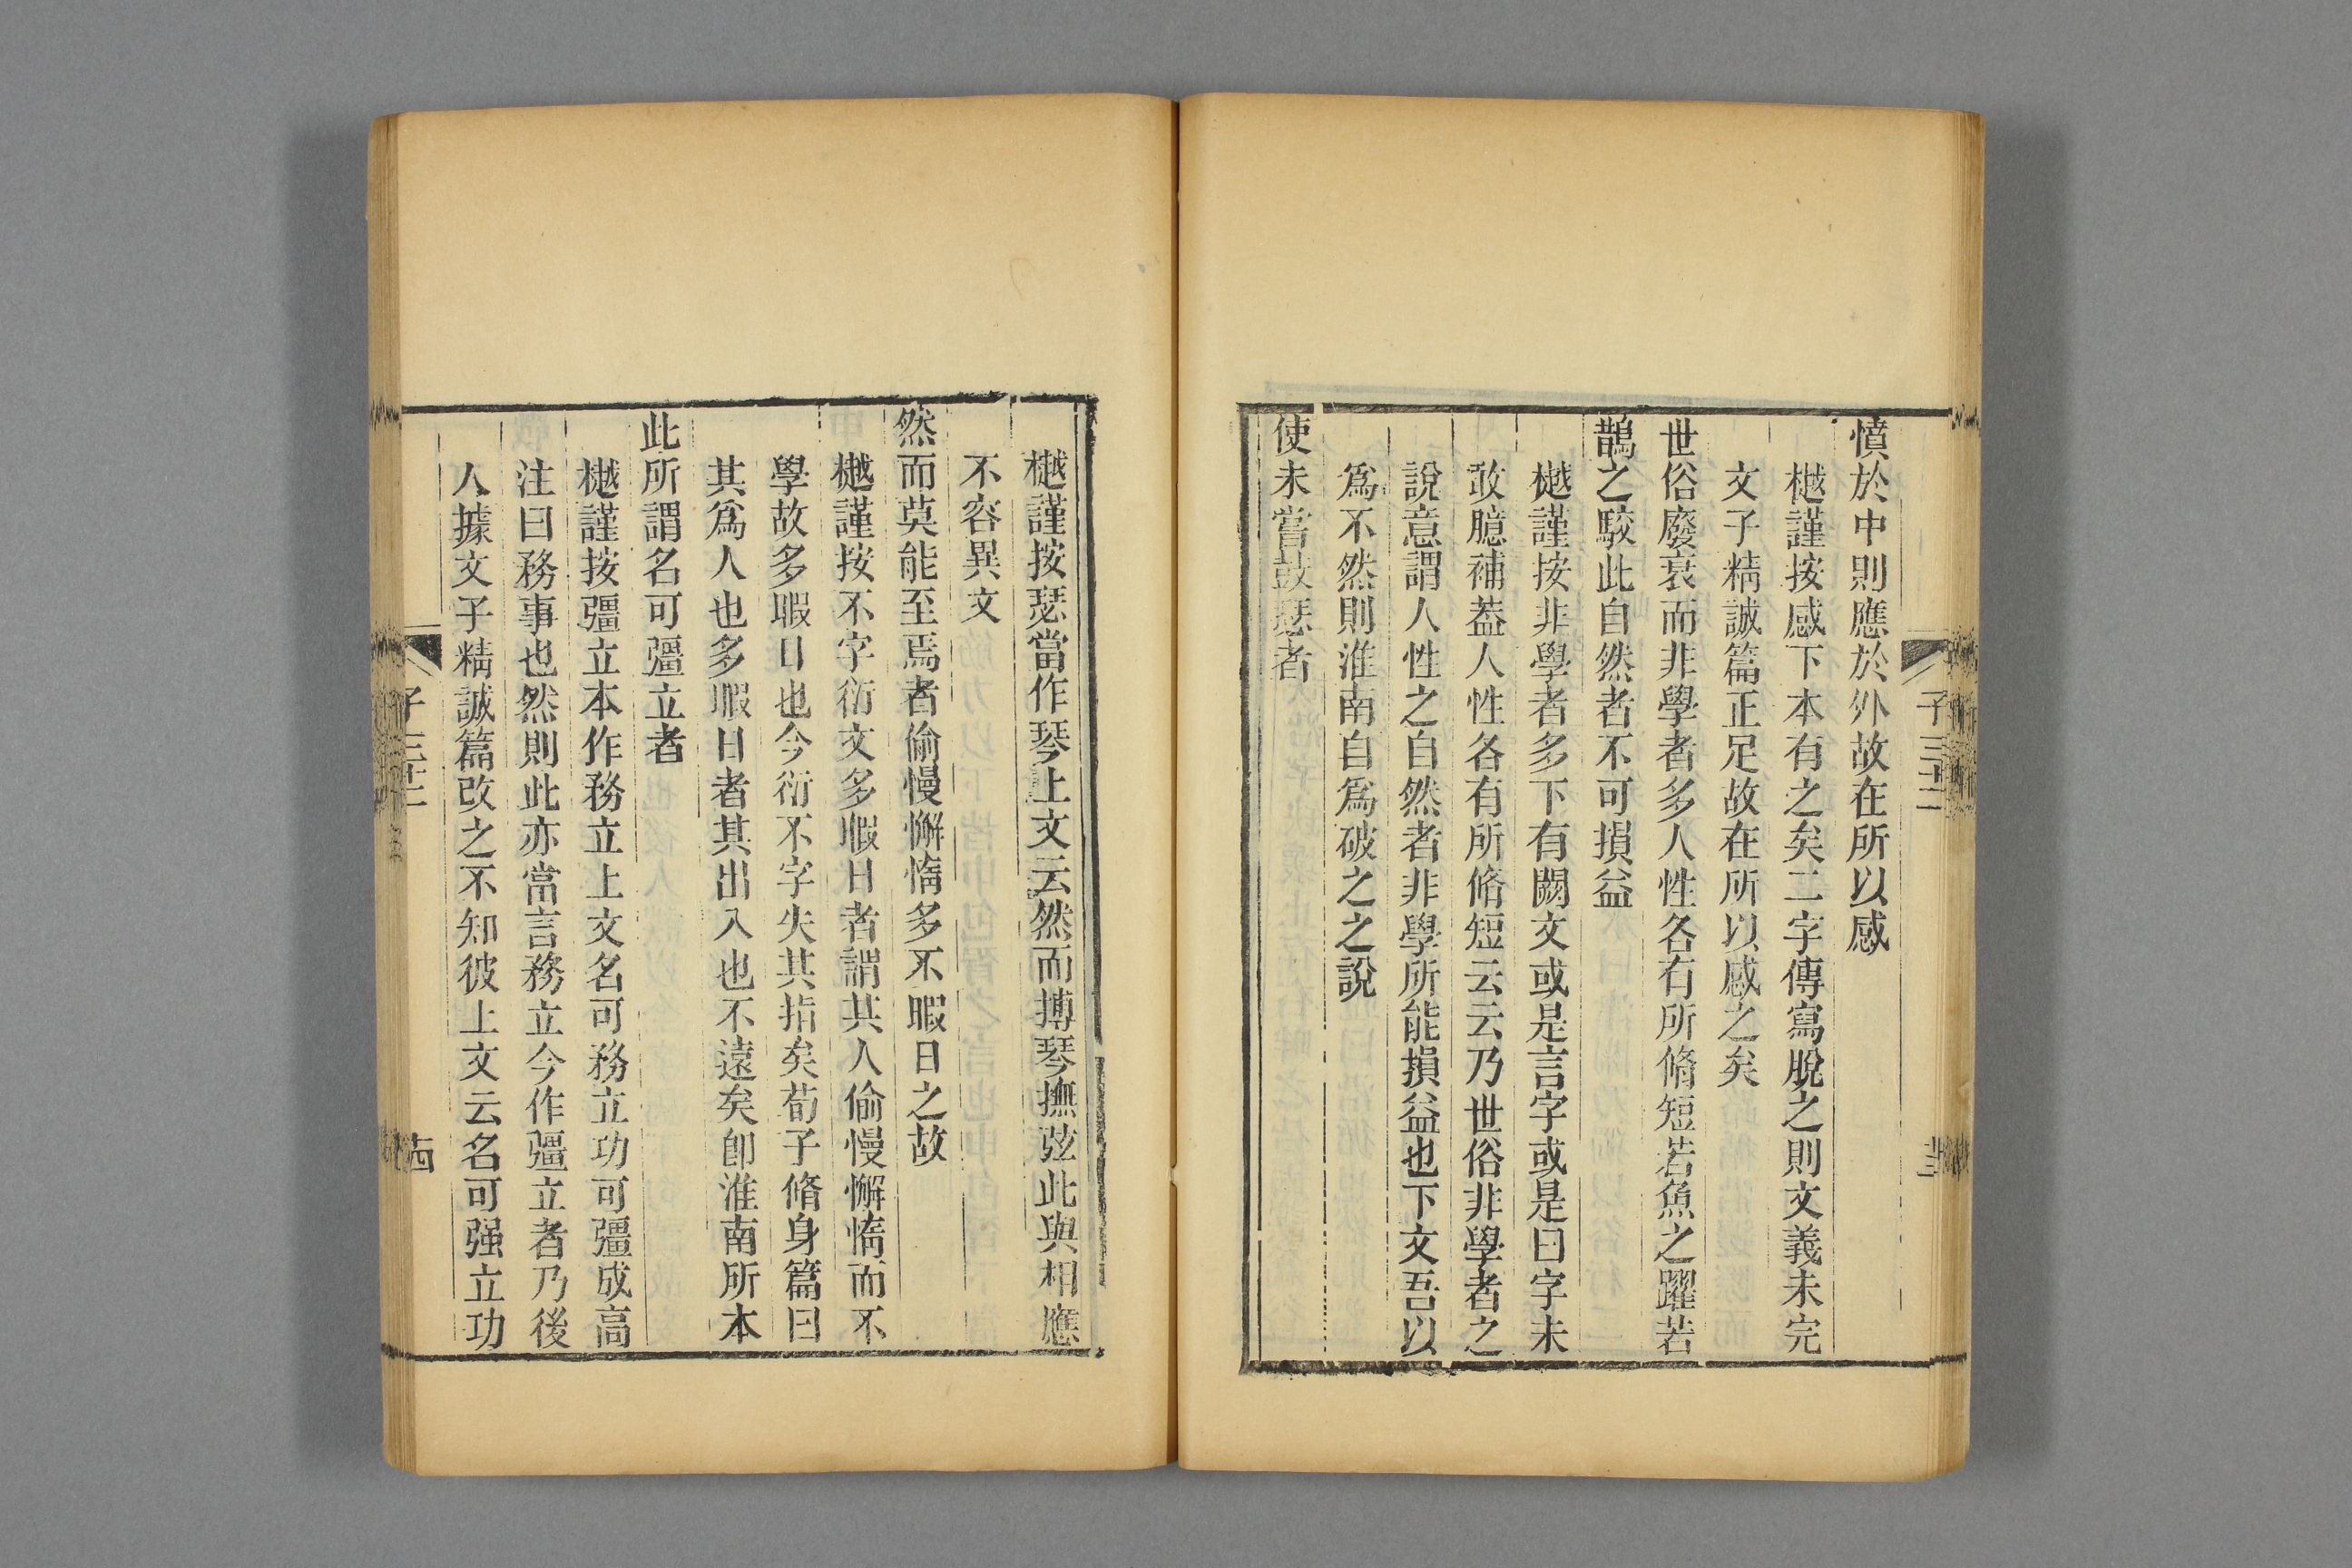 憤於中則應於外故在所以感
樾謹按感下本有之矣二字傳寫脫之則文義未完
文子精誠篇正足故在所以感之矣
世俗廢衰而非學者多人性各有所脩短若魚之躍若
鵲之駮此自然者不可損益
樾謹按非學者多下有闕文或是言字或是曰字未
敢臆補葢人性各有所脩短云云乃世俗非學者之
說意謂人性之自然者非學所能損益也下文吾以
爲不然則淮南自爲破之之說
使未嘗鼓瑟者
子三十二
樾謹按瑟當作琴上文云然而搏琴撫弦此與相應
不容異文
然而莫能至焉者偷慢懈惰多不暇日之故
樾謹按不字衍文多暇日者謂其人偷慢懈惰而不
學故多暇日也今衍不字失其指矣荀子脩身篇曰
其爲人也多暇日者其出入也不遠矣卽淮南所本
此所謂名可彊立者
樾謹按彊立本作務立上文名可務立功可彊成高
注曰務事也然則此亦當言務立今作彊立者乃後
人據文子精誠篇改之不知彼上文云名可强立功
子三十二